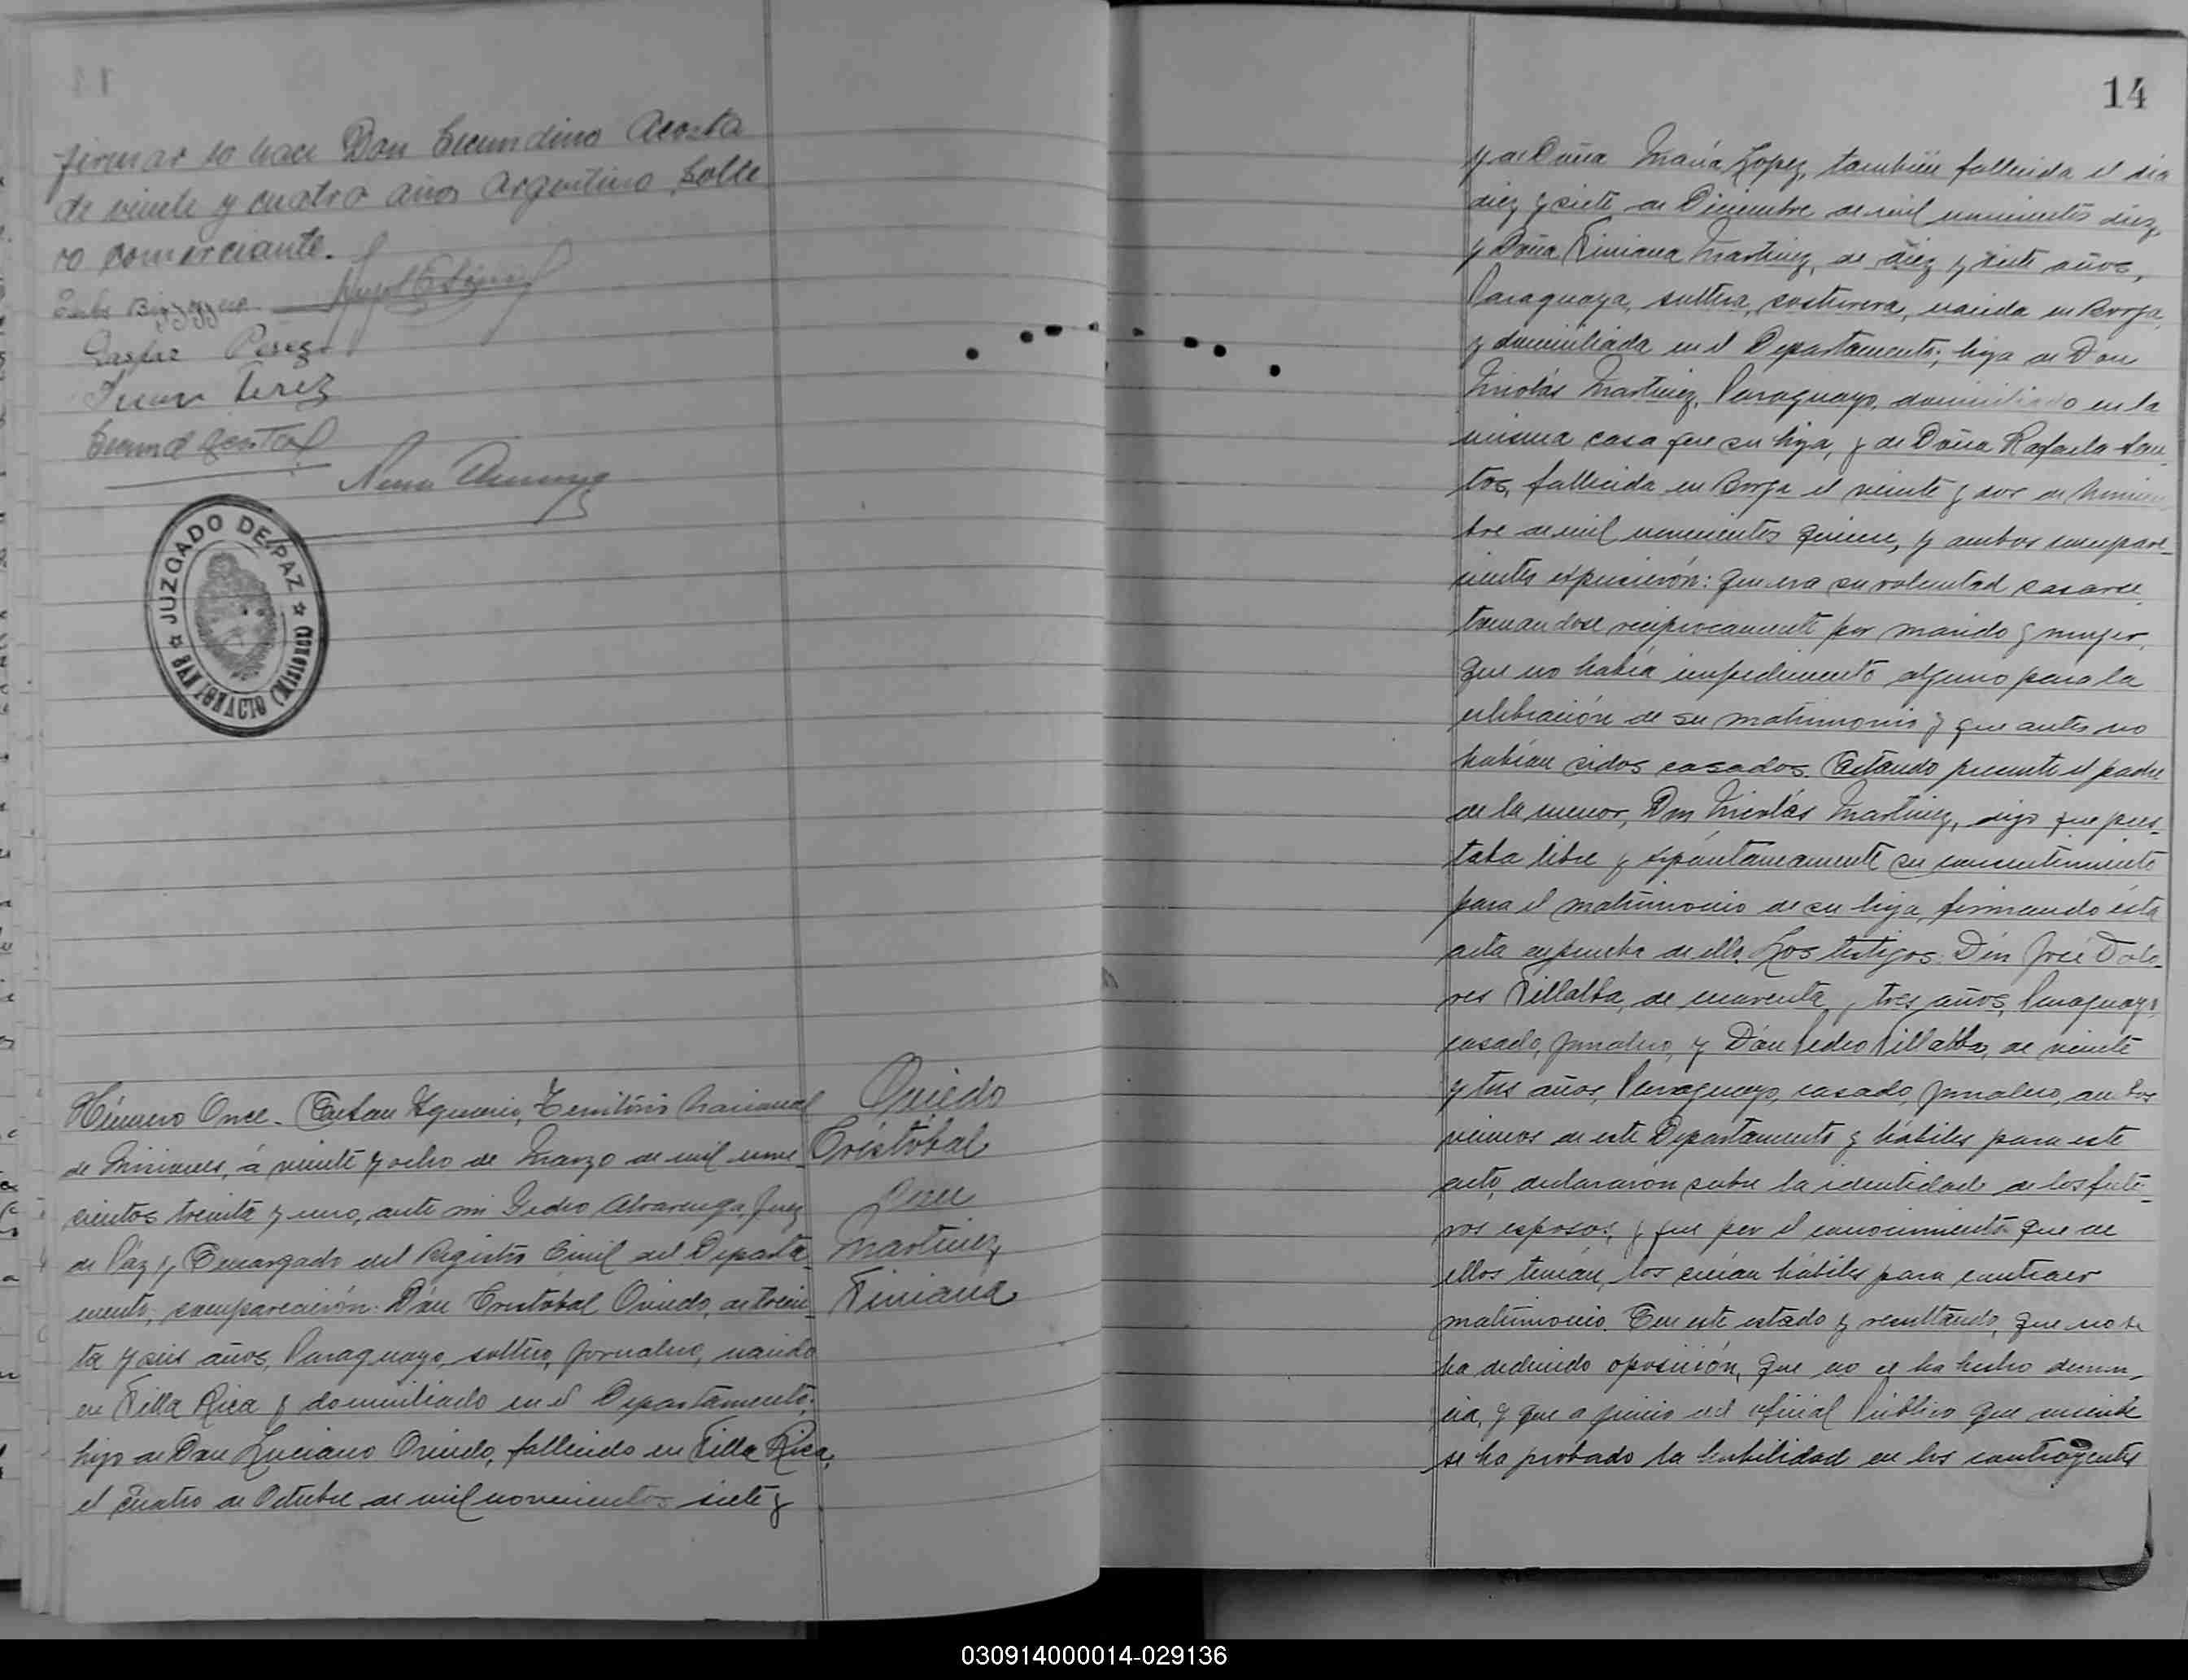 firmar lo hace Don Secundino Acosta
de veinte y cuatro años Argentino Solte
ro comerciante.
Gaspar Perez
Juan Perez
JUZGADO DE PAZ
SAN IGNACIO (MISIONES)
Número Once. En San Ygnacio, Territorio Nacional
de Misiones, á veinte y ocho de Marzo de mil nove
cientos treinta y uno, ante mi Pedro Alvarenga, Juez
de Páz y Encargado del Registro Civil del Departa
mento, comparecieron: Dón Cristóbal Oviedo, de trein
ta y seis años, Paraguayo, soltero, jornalero, nacido
en Villa Rica y domiciliado en el Departamento;
hijo de Don Luciano Oviedo, fallecido en Villa Rica,
el cuatro de Octubre de mil novecientos siete y
Oviedo
Cristóbal
con
Martinez
Viviana
14
y de Doña María Lopez, también fallecida el dia
diez y siete de Diciembre de mil novecientos diez,
y Doña Viviana Martinez, de diez y siete años,
Paraguaya, soltera, costurera, nacida en Borja,
y domiciliada en el Departamento; hija de Don
Nicolás Martinez, Paraguayo, domiciliado en la
misma casa que su hija, y de Doña Rafaela San
tos, fallecida en Borja el veinte y dos de Noviem
bre de mil novecientos quince, y ambos compare
cientes expusierón: que era su voluntad casarse
tomandose reciprocamente por marido y mujer,
que no había impedimento alguno para la
celebración de su matrimonio y que antes no
habían sidos casados. Estando presente el padre
de la menor, Don Nicolás Martinez, dijo que pres
taba libre y espóntaneamente su consentimiento
para el matrimonio de su hija, firmando ésta
acta en prueba de ello. Los testigos: Dón José Dolo
res Villalba, de cuarenta y tres años, Paraguayo,
casado, jornalero, y Dón Pedro Villalba, de veinte
y tres años, Paraguayo, casado, jornalero, ambos
vecinos de este Departamento y hábiles para este
acto, declararón sobre la identidad de los futu
ros esposos, y que por el conocimiento que de
ellos tenían, los creían hábiles para contraer
matrimonio. En este estado y resultando, que no se
ha deducido oposición, que no se ha hecho denun
cia, y que a juicio del oficial Público que suscribe
se ha probado la habilidad en los contrayentes
030914000014-029136